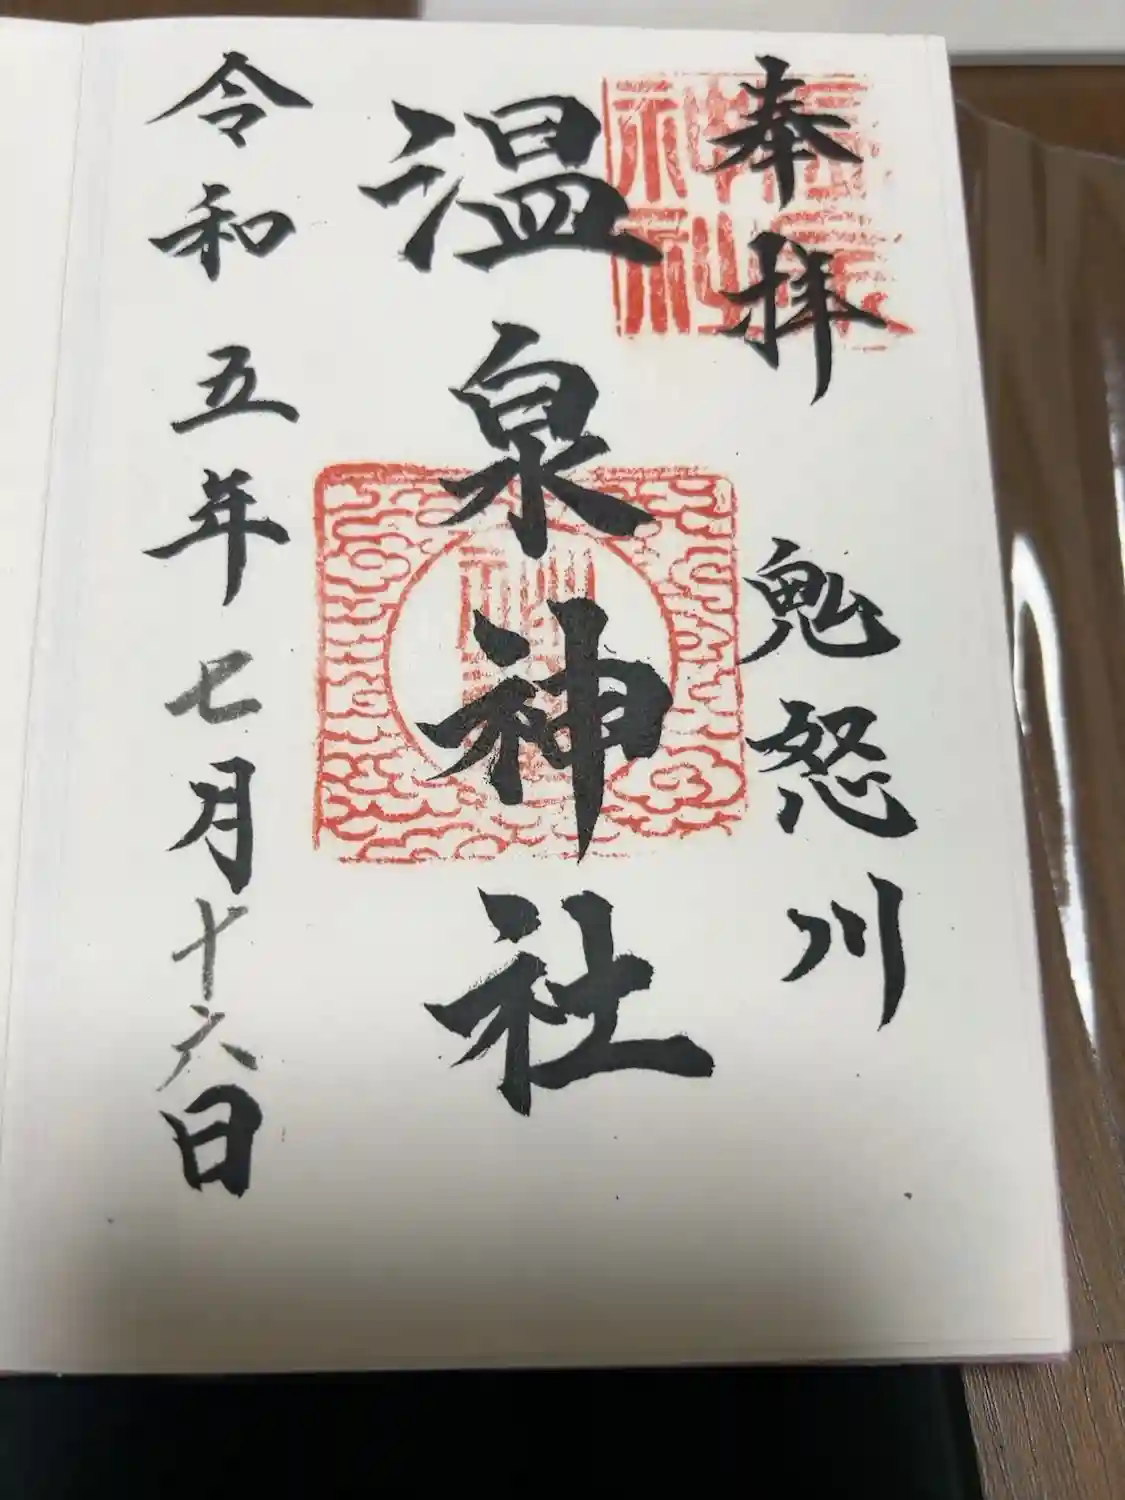 奉拝
鬼怒川
温泉神社
令和五年七月十六日